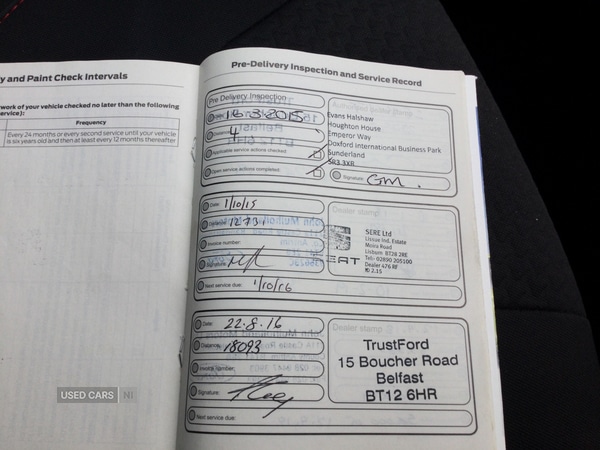 y and Paint Check Intervals
work of your vehicle checked no later than the following
service):
Frequency
Every 24 months or every second service until your vehicle
is six years old and then at least every 12 months thereafter
Pre-Delivery Inspection and Service Record
Pre Delivery Inspection
Date: 16.3.2015
Distance: 4
Applicable service actions checked:
Open service actions completed:
Authorized dealer stamp
Evans Halshaw
Houghton House
Emperor Way
Doxford International Business Park
Sunderland
SR3 3XR
Signature: GM.
Date: 1/10/15
Distance: 12731
Invoice number:
Signature:
Next service due: 1/10/16
Dealer stamp
SEAT
SERE Ltd
Lissue Ind. Estate
Moira Road
Lisburn BT28 2RE
Tel: 02890 205100
Dealer 476 RF
2.15
Date: 22.8.16
Distance: 18093
Invoice number:
Signature:
Next service due:
Dealer stamp
TrustFord
15 Boucher Road
Belfast
BT12 6HR
USED CARS NI